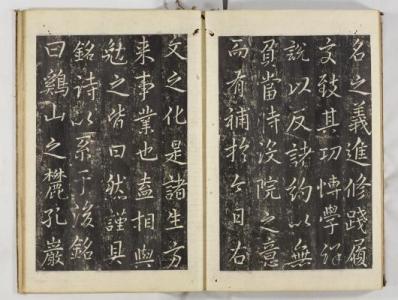 名之義進修踐履
文致其功博學詳
說以反諸約以無
負當時設院之意
而有補於今日右
文之化是諸生方
来事業也盍相與
勉之皆曰然謹具
銘詩以系于後銘
曰鷄山之麓孔巖